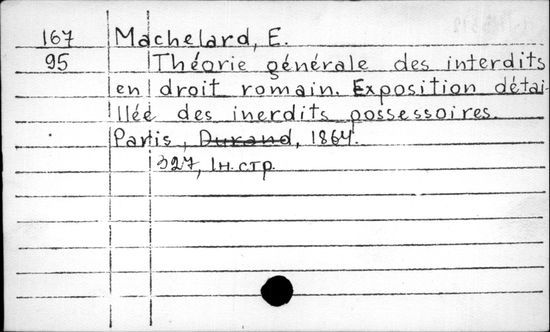 167 Machelard, E.
95 Théorie générale des interdits
en droit romain. Exposition détai-
llée des inerdits possessoires.
Paris, Durand, 1864.
327, 1н.стр.